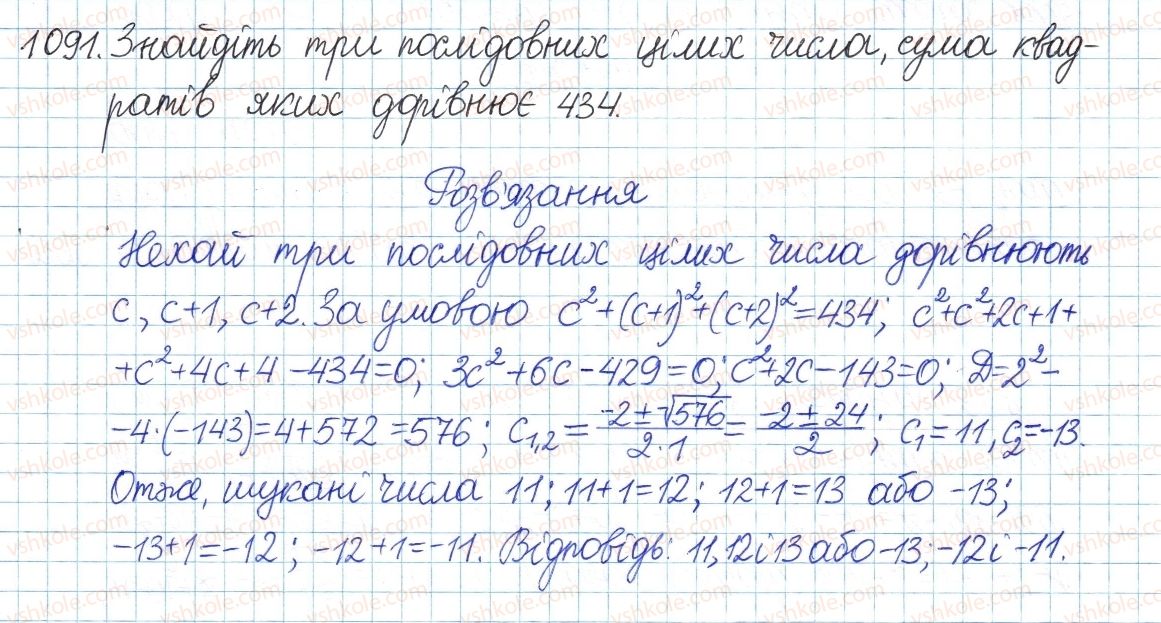 1091. Знайдіть три послідовних цілих числа, сума квад-
ратів яких дорівнює 434.
Розв'язання
Нехай три послідовних цілих числа дорівнюють
c, c+1, c+2. За умовою c²+(c+1)²+(c+2)²=434; c²+c²+2c+1+
+c²+4c+4-434=0; 3c²+6c-429=0; c²+2c-143=0; Д=2²-
-4·(-143)=4+572=576; c₁,₂=(-2±√576)/(2·1)=(-2±24)/2; c₁=11, c₂=-13.
Отже, шукані числа 11; 11+1=12; 12+1=13 або -13;
-13+1=-12; -12+1=-11. Відповідь: 11, 12 і 13 або -13; -12 і -11.